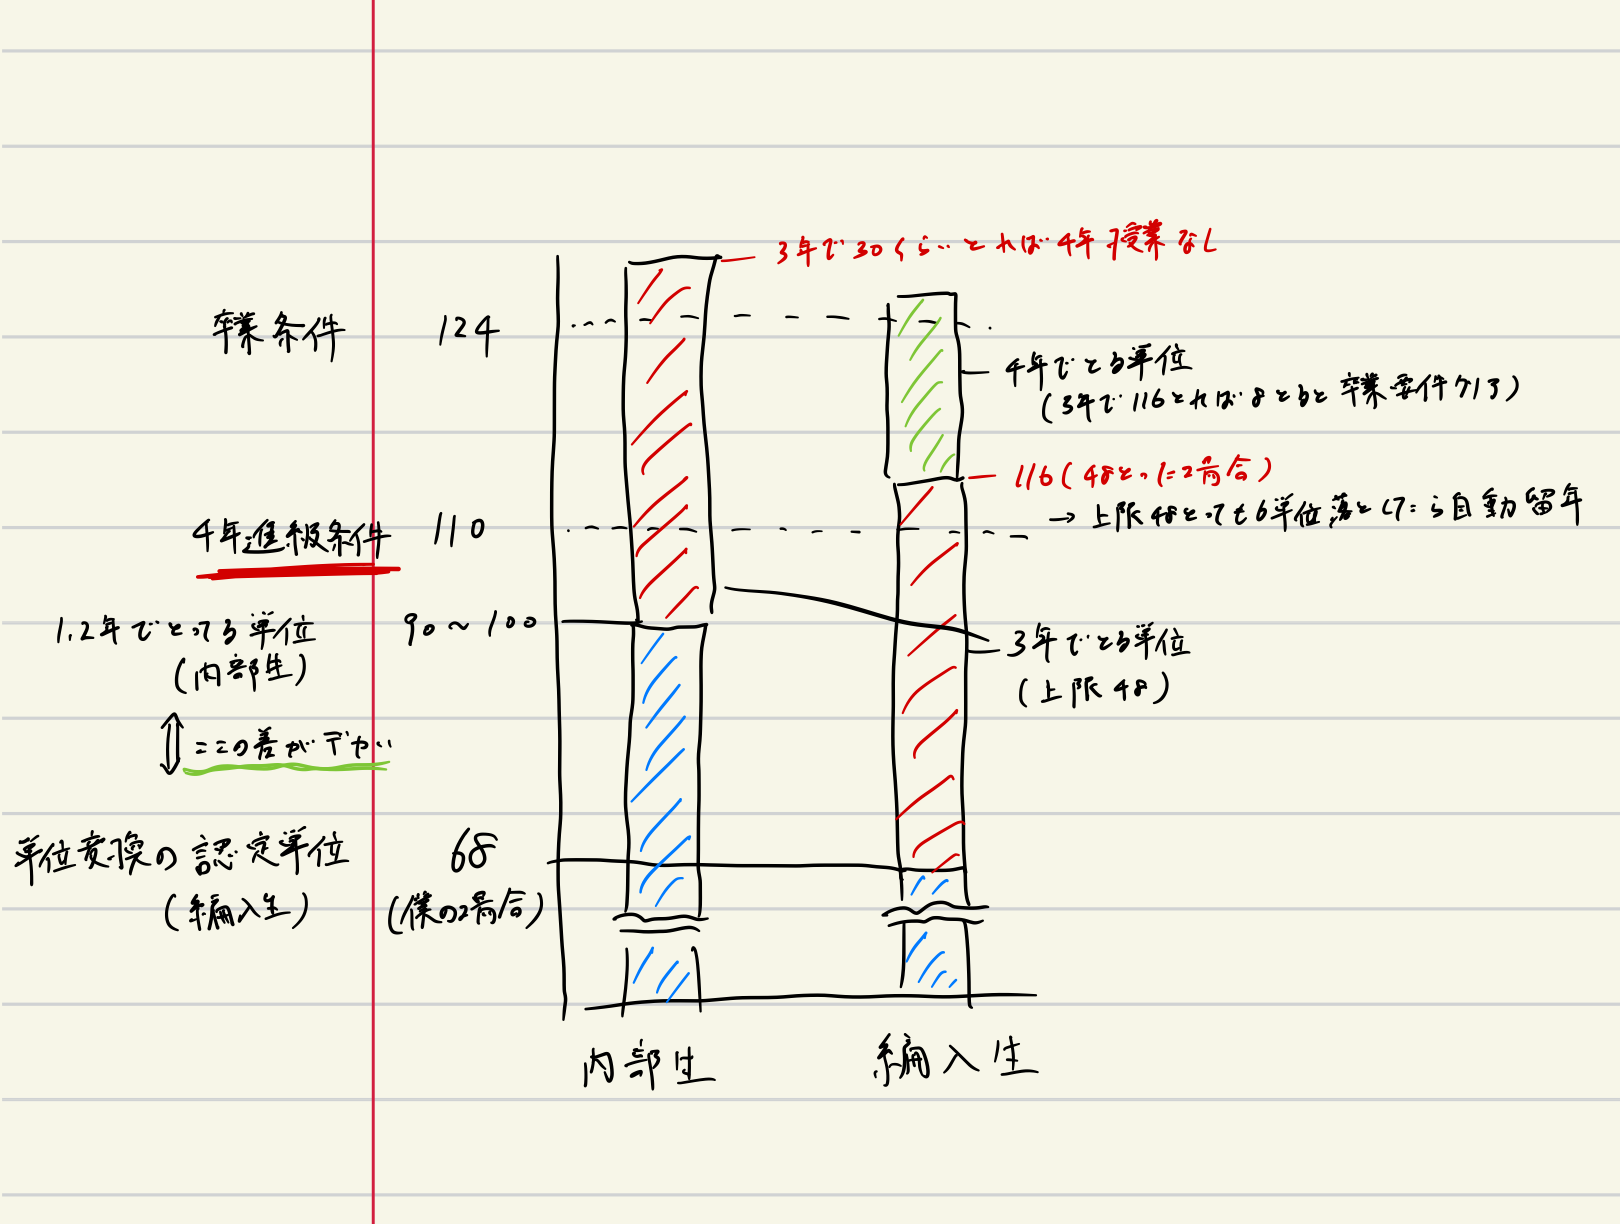 3年で30くらいとれば4年授業なし
卒業条件 124
4年でとる単位
(3年で116とれば8とると卒業要件クリア)
116(48とった場合)
→ 上限48とっても6単位落としたら自動留年
4年進級条件 110
1,2年でとってる単位 90～100
(内部生)
3年でとる単位
(上限48)
ここの差がデカい
単位変換の認定単位 68
(編入生) (僕の場合)
内部生 編入生